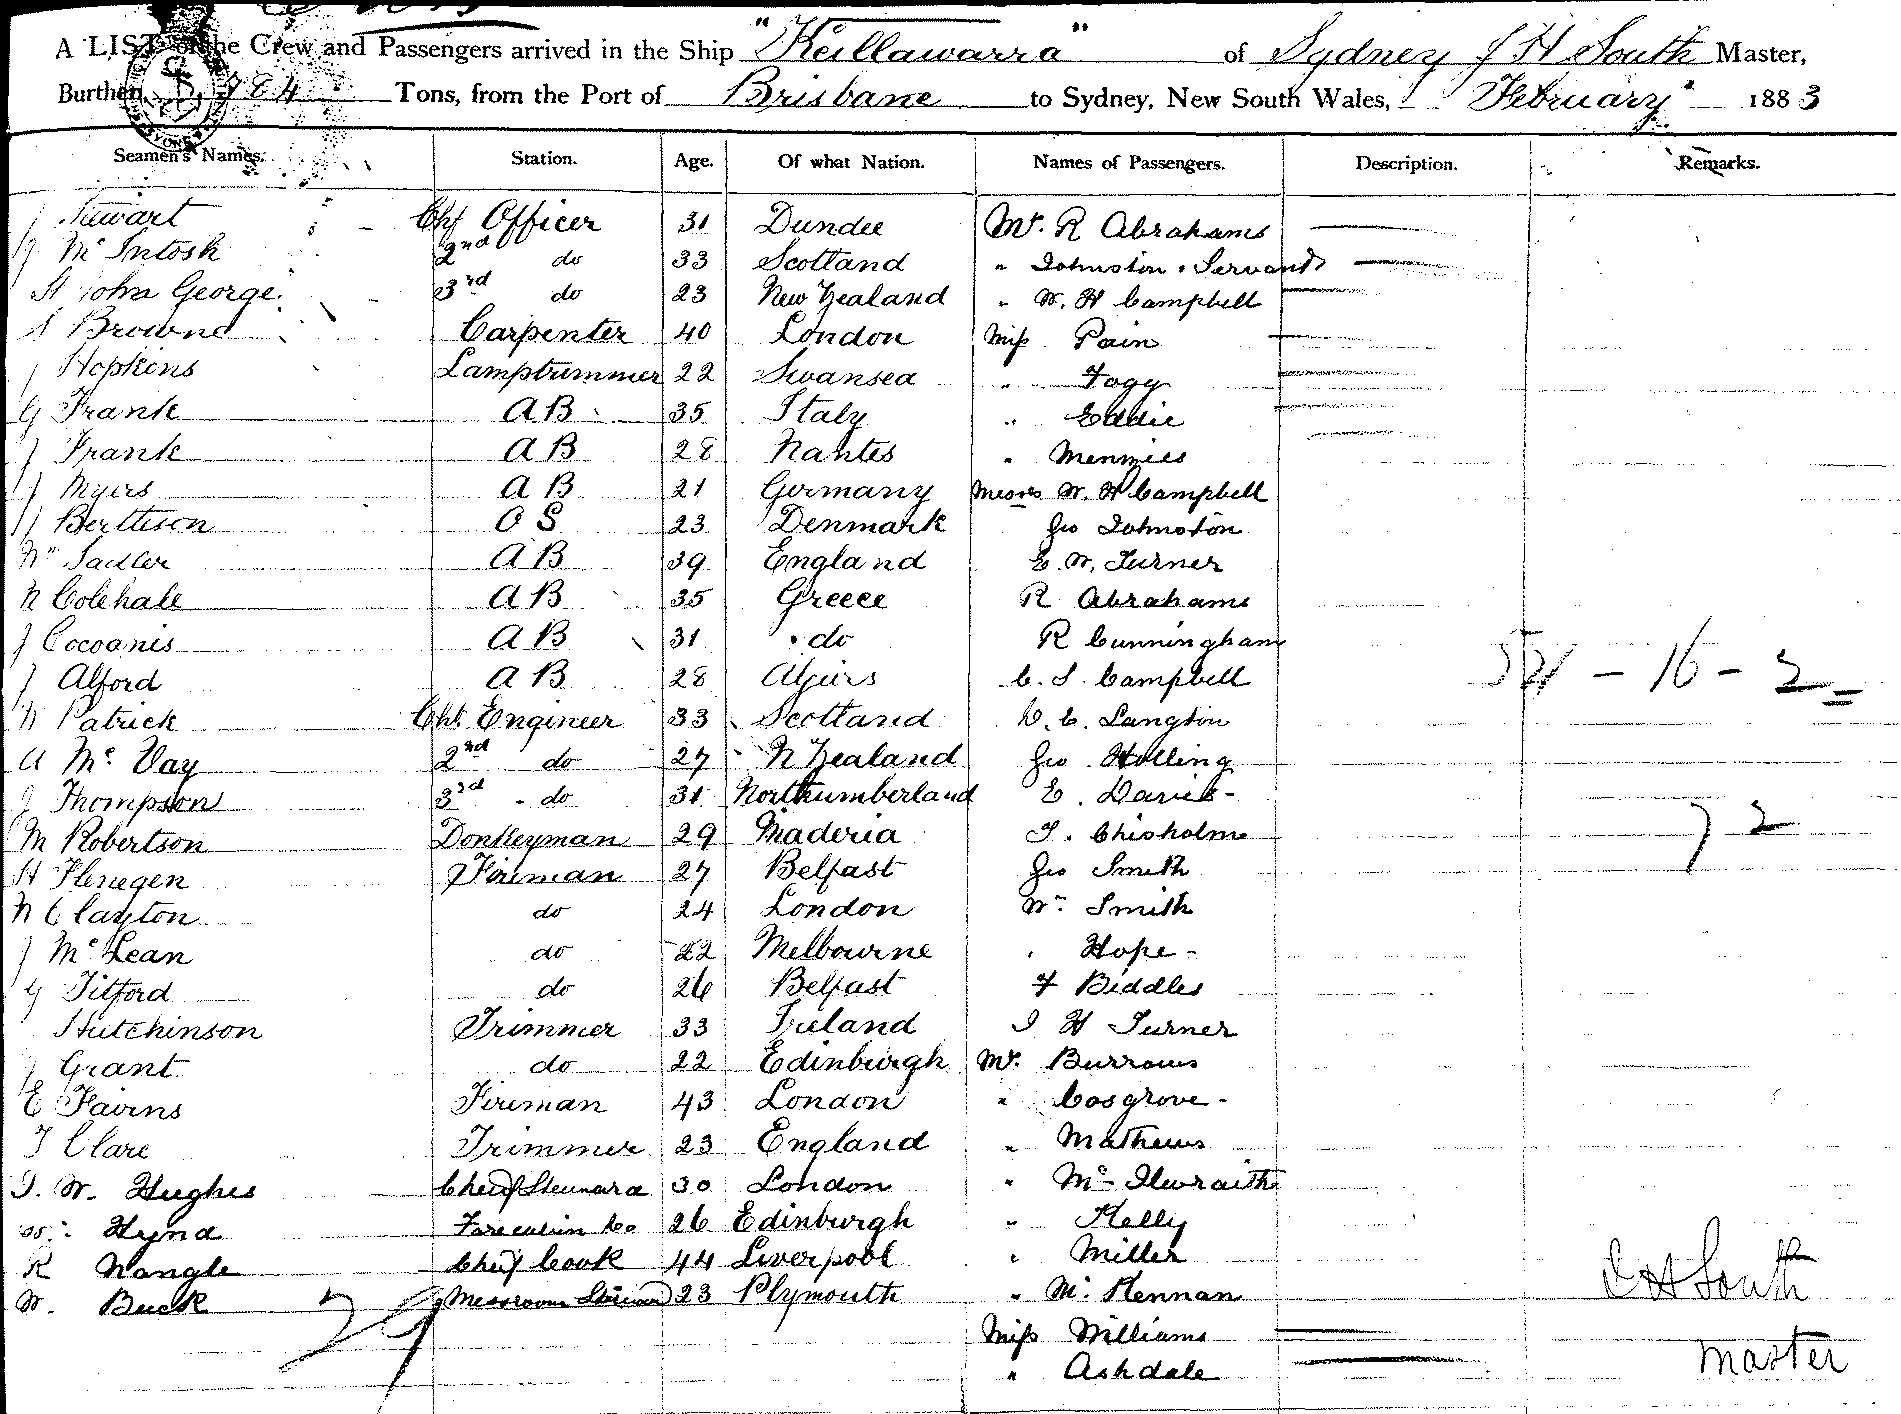 A LIST of the Crew and Passengers arrived in the Ship "Keilawarra" of Sydney J H South Master,
Burthen 784 Tons, from the Port of Brisbane to Sydney, New South Wales, February 1883
Seamen's Names. Station. Age. Of what Nation. Names of Passengers. Description. Remarks.
J Stewart Chf Officer 31 Dundee Mr. R Abrahams
McIntosh 2nd do 33 Scotland " Johnston & Servant
St John George 3rd do 23 New Zealand " W. H Campbell
S Browne Carpenter 40 London Miss Pain
J Hopkins Lamptrimmer 22 Swansea " Fogg
G Frank AB 35 Italy " Eddie
J Frank AB 28 Nantes " Menmies
J Myers AB 21 Germany Messrs W. H Campbell
J Berttison OS 23 Denmark Geo Johnston
Wm Sadler AB 39 England E. W. Turner
N Colehale AB 35 Greece R Abrahams
J Cocoanis AB 31 " do R Cunningham
J Alford AB 28 Algiers C. S. Campbell 54 - 16 - 2
W Patrick Chf Engineer 33 Scotland D. C. Langton
A Mc Vay 2nd do 27 N Zealand Geo Holling
J Thompson 3rd do 31 Northumberland E. Davies
M Robertson Donkeyman 29 Maderia T. Chisholme 72
H Flenegen Fireman 27 Belfast Geo Smith
W Clayton do 24 London Wm Smith
J McLean do 22 Melbourne " Hope
G Tilford do 26 Belfast F Biddles
Hutchinson Trimmer 33 Ireland J H Turner
J Grant do 22 Edinburgh Mr. Burrows
E Fairns Fireman 43 London " Cosgrove
T Clare Trimmer 23 England " Mathews
J. W. Hughes Chief Steward 30 London " McIlwraith
Wm Hynd Forecabin do 26 Edinburgh " Kelly
R Nangle Chief Cook 44 Liverpool " Miller
W. Buck Messroom Steward 23 Plymouth " Mc Kennan
J H South
29
Miss Williams
" Ashdale
Master